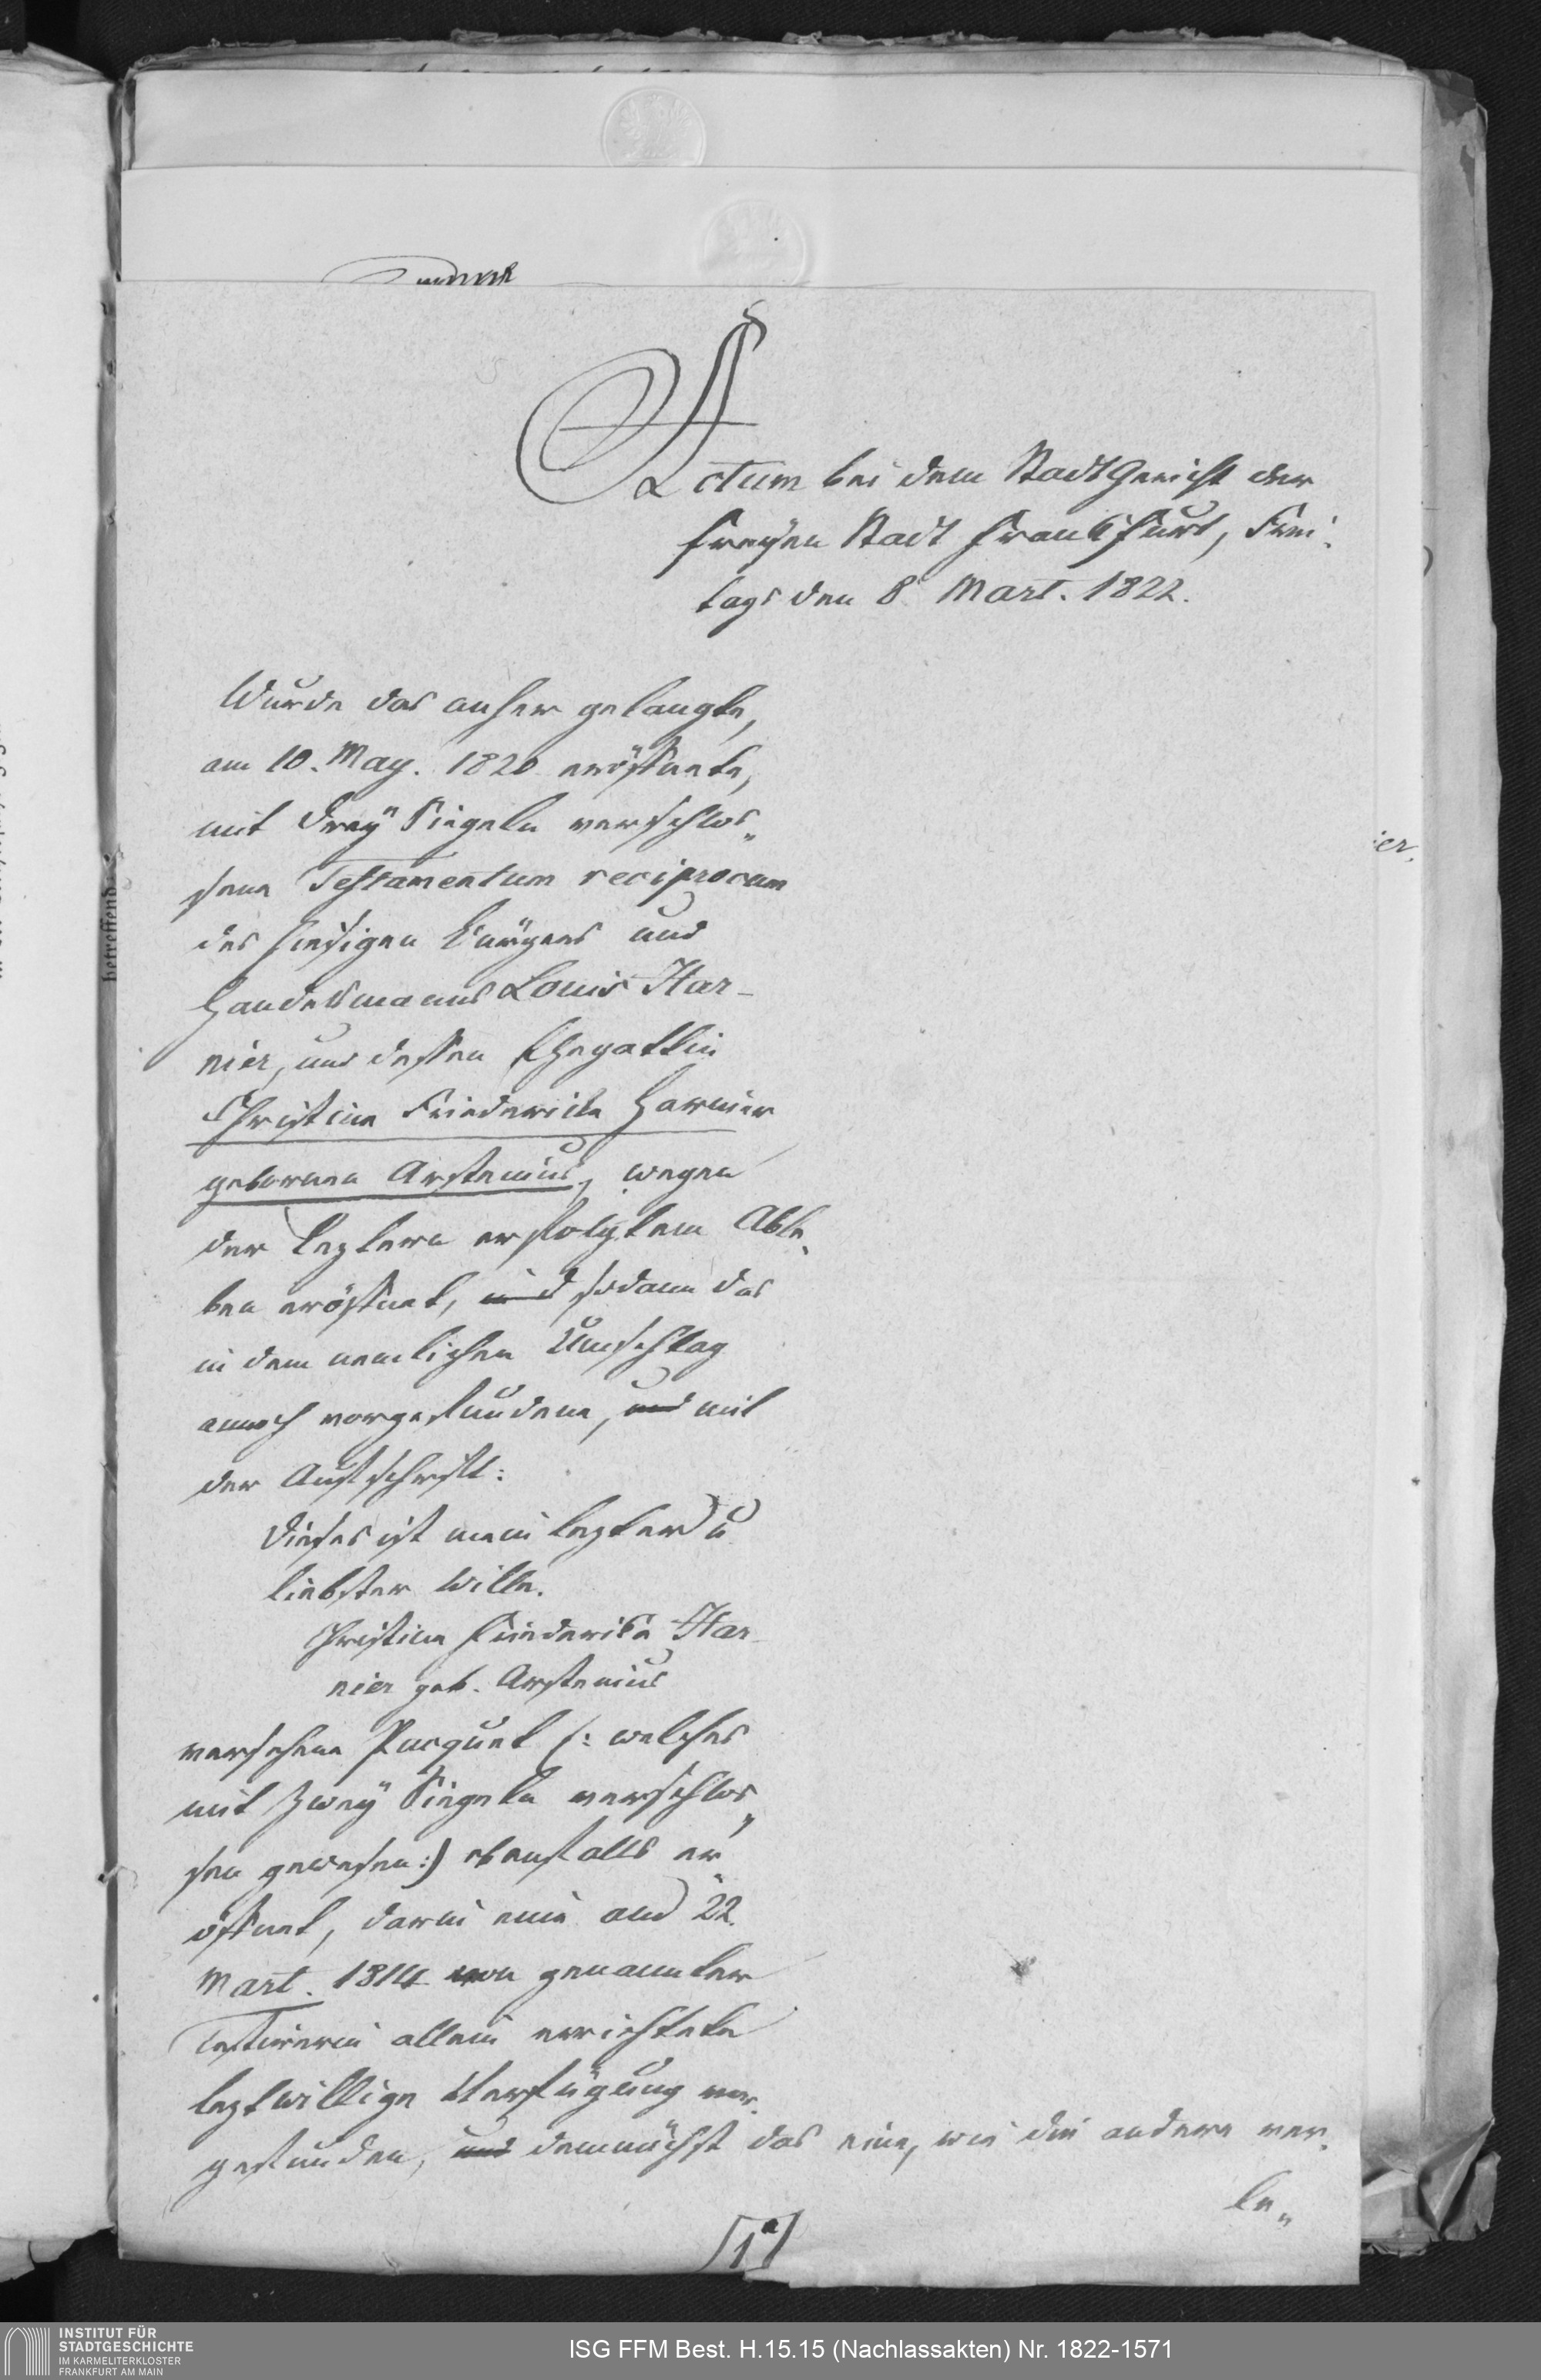 Actum bei dem Stadt Gericht der
freyen Stadt Frankfurt, Frei-
tags den 8. Mart. 1822.
Wurde das anher gelangte,
am 10. May. 1820 eröffnete,
mit drey Siegeln verschlos„
sene Testamentum reciprocum
des hiesigen Bürgers und
Handelsmanns Louis Har-
nier, und dessen Ehegattin
Christine Friederike Harnier
gebornen Arstenius, wegen
der leztern erfolgtem Able„
ben eröffnet, und sodann das
in dem nemlichen Umschlag
annoch vorgefundene, und mit
der Aufschrift:
Dieses ist mein lezter u
liebster Wille.
Christine Friederike Har-
nier geb. Arstenius
versehene Pacquet (: welches
mit zwey Siegeln verschlos„
sen gewesen :) ebenfalls er„
öffnet, darin eine am 22.
Mart. 1814 von genannter
Testirerin allein errichtete
leztwillige Verfügung vor-
gefunden, und demnächst das eine, wie die andere ver-
le„
[1a]
ier.
betreffend
INSTITUT FÜR
STADTGESCHICHTE
IM KARMELITERKLOSTER
FRANKFURT AM MAIN
ISG FFM Best. H.15.15 (Nachlassakten) Nr. 1822-1571